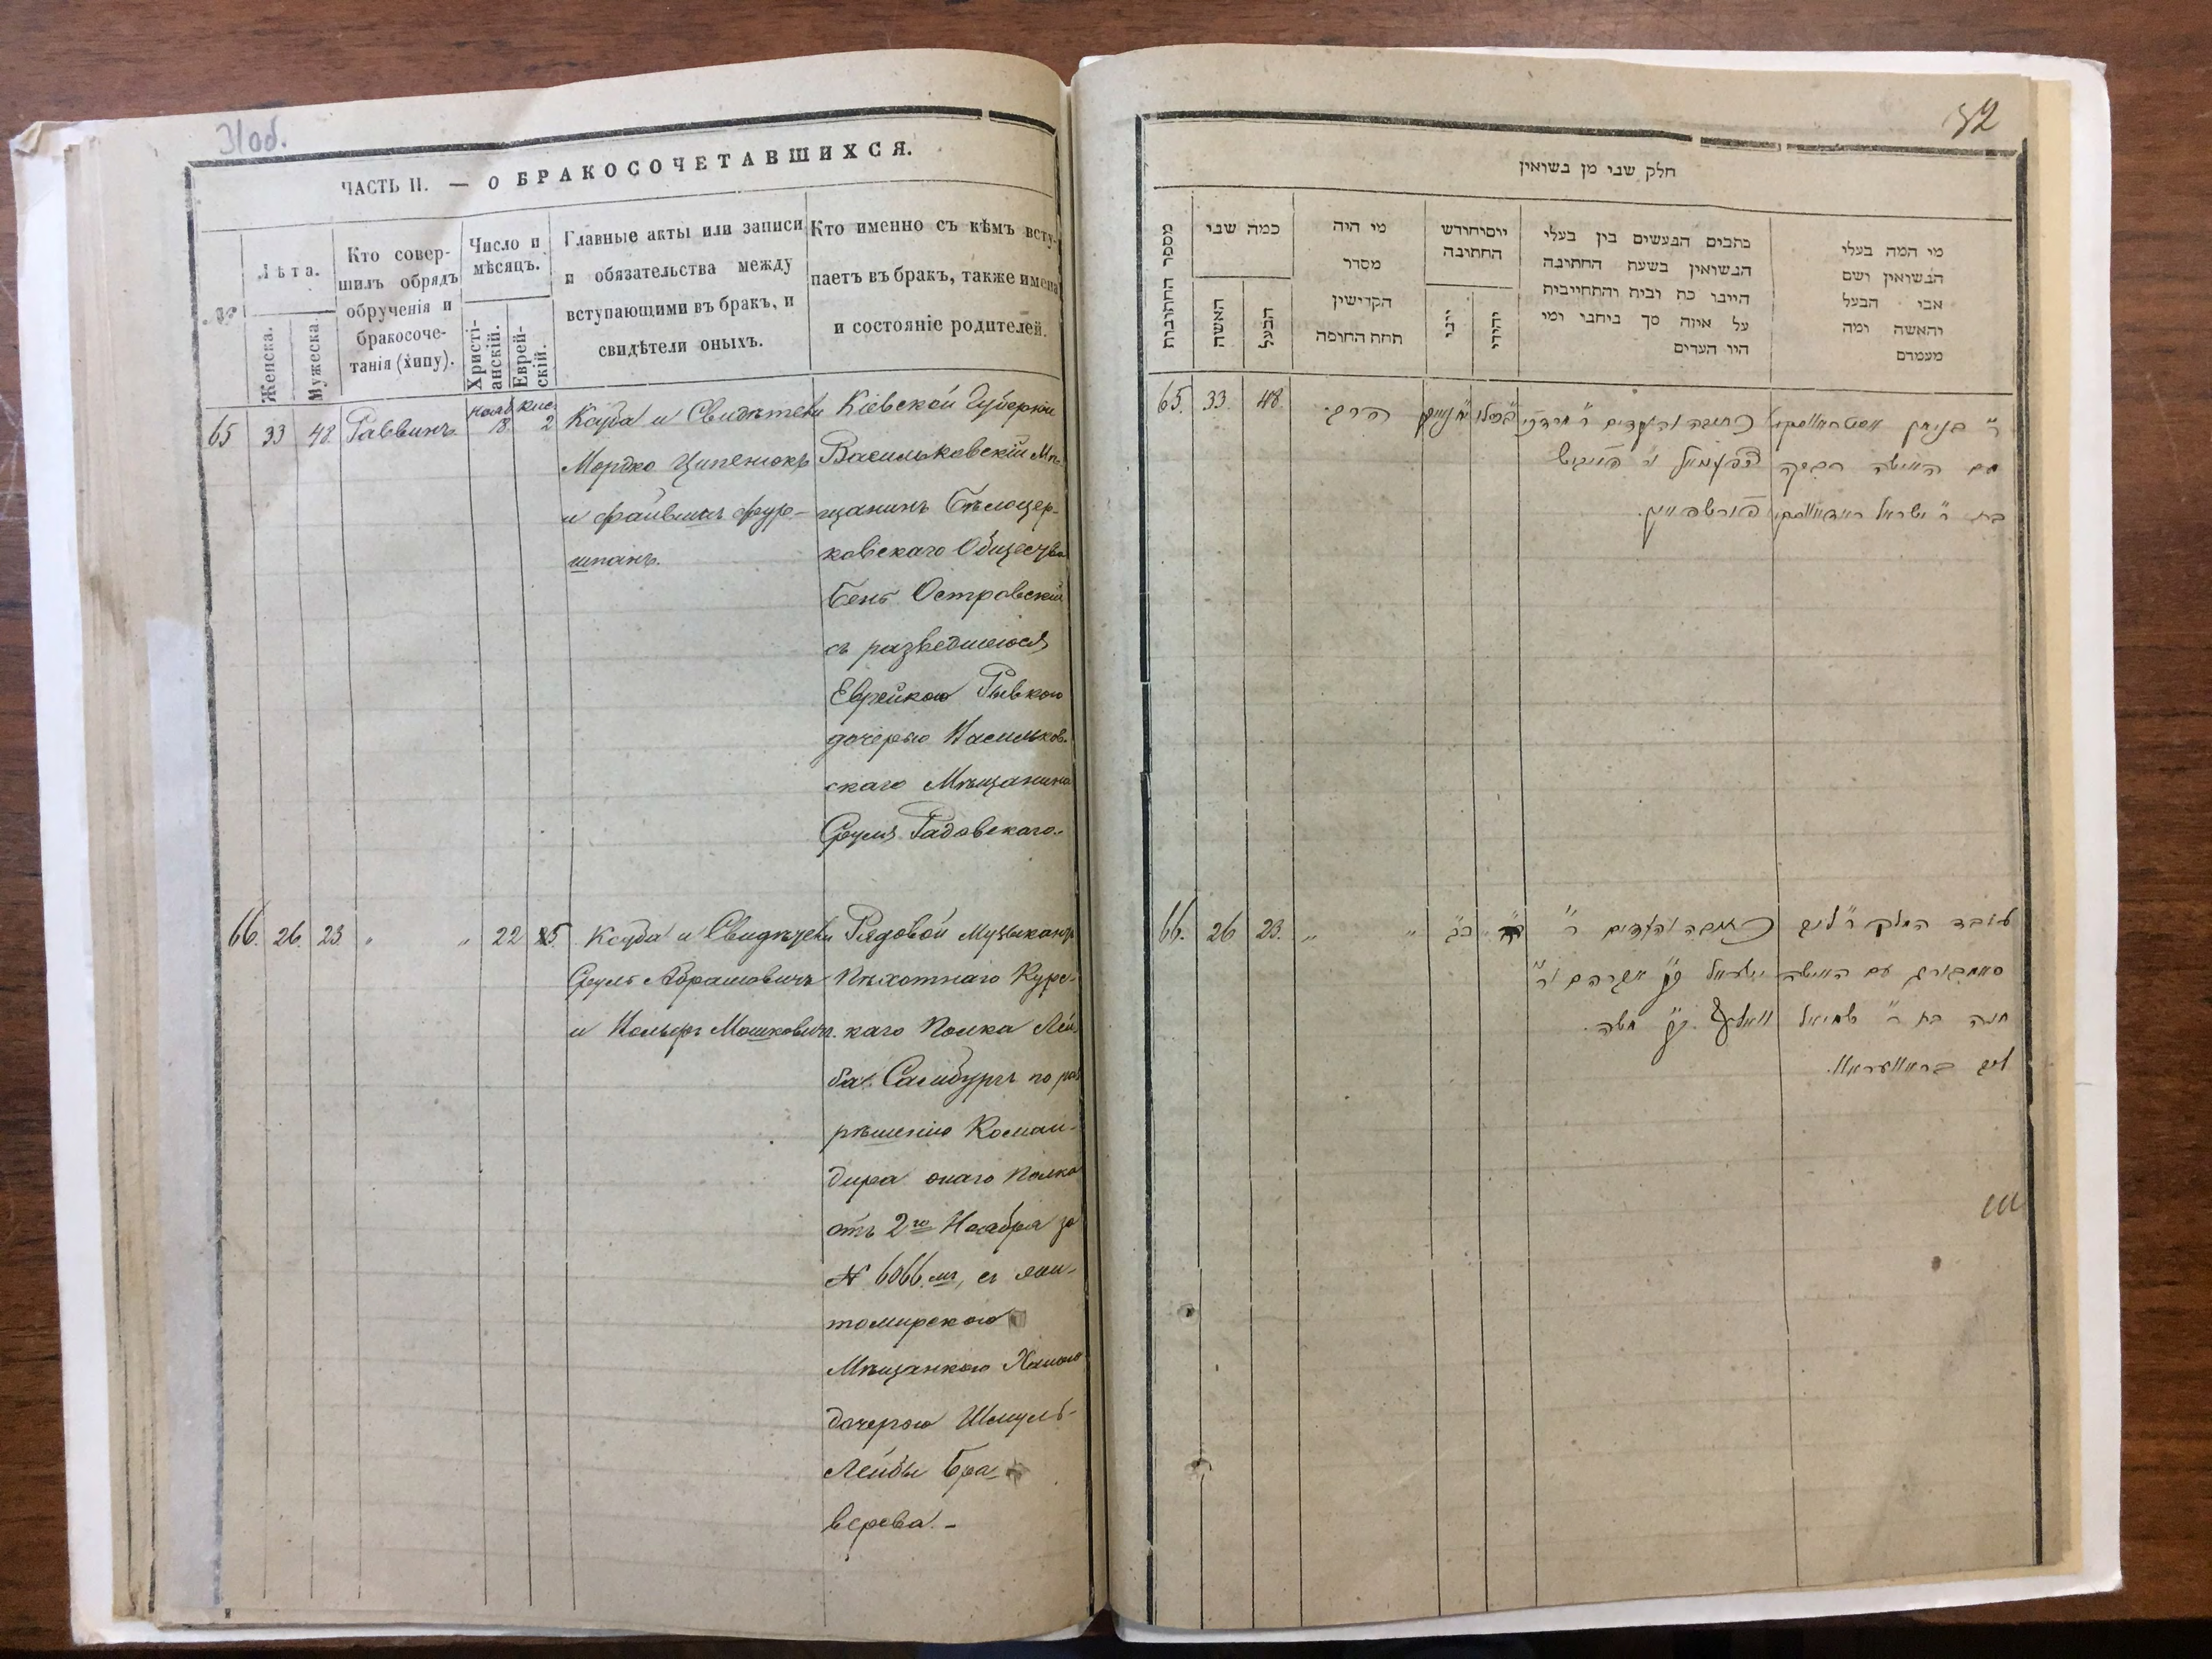 31об.
ЧАСТЬ II. — О БРАКОСОЧЕТАВШИХСЯ.
№
Лѣта.
Женска.
Мужеска.
Кто совер-
шилъ обрядъ
обрученія и
бракосоче-
танія (хипу).
Число и
мѣсяцъ.
Христі-
анскій.
Еврей-
скій.
Главные акты или записи
и обязательства между
вступающими въ бракъ, и
свидѣтели оныхъ.
Кто именно съ кѣмъ всту-
паетъ въ бракъ, также имена
и состояніе родителей.
65 33 48. Раввинъ. Нояб. 18. Кис. 2
Ксуба и Свидѣтели
Мордко Ципенюкъ
и Файвишъ Фур-
шпанъ.
Кіевской Губерніи
Васильковскій Мѣ-
щанинъ Бѣлоцер-
ковскаго Общества
Бенъ Островскій
съ разведшеюся
Еврейкою Рывкою
дочерью Васильков-
скаго Мѣщанина
Сруля Радовскаго.
66. 26. 23. „ „ 22 25.
Ксуба и Свидѣтели
Сруль Абрамовичъ
и Мошковичъ.
Рядовой Музыкантъ
Пѣхотнаго Курс-
каго Полка Лей-
ба Салибургъ по раз
рѣшенію Коман-
дира онаго Полка
отъ 2го Ноября за
№ 6066.мъ, съ жи-
томирскою
Мѣщанкою Ханою
дочерью Шмуль-
Лейбы Бра-
верева. —
32
חלק שני מן נשואין
מספר החתונות
כמה שני
האשה
הבעל
מי היה
מסדר
הקדישין
תחת החופה
יום וחודש
החתונה
יוני
יהודי
כתבים הנעשים בין בעלי
הנשואין בשעת החתונה
היינו כת ובית והתחייבית
על איזה סך ביחבי ומי
היו העדים
מי המה בעלי
הנשואין ושם
אבי הבעל
והאשה ומה
מעמדם
65. 33. 48. הרב.
כתובה והעדים ר' מרדכי
עם האשה רבקה
בת ר' ישראל
66. 26 23. „ „
כתובה והעדים ר'
ישראל בן אברהם ור'
בן משה.
עם האשה
חנה בת ר' שמואל
ליב